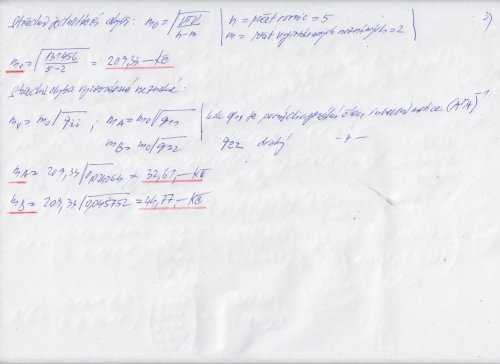 Střední jednotková chyba: m₀ = √([vv]/(n-m)) | n = počet rovnic = 5 3)
m = počet vyrovnávaných neznámých = 2
m₀ = √(131456/(5-2)) = 209,33,- Kč
Střední chyba vyrovnané neznámé:
mᵢ = m₀√qᵢᵢ ; m_A = m₀√q₁₁ | kde q₁₁ je první diagonální člen inversní matice (AᵀA)⁻¹
m_B = m₀√q₂₂ q₂₂ druhý -"-
m_A = 209,33 = 32,61,- Kč
m_B = 209,33√0,045752 = 44,77,- Kč